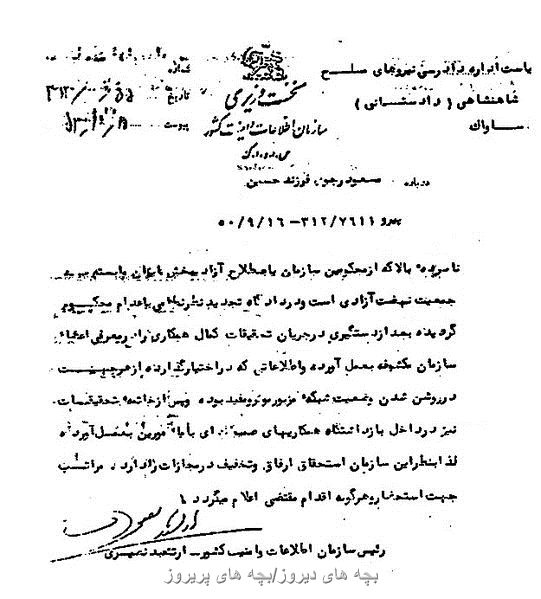 ریاست اداره دادرسی نیروهای مسلح
شاهنشاهی (دادستانی)
ساواک
نخست وزیری
سازمان اطلاعات و امنیت کشور
س.ا.و.ا.ک
شماره
تاریخ
پیوست
درباره مسعود رجوی فرزند حسین
پیرو ۳۱۲/۷۶۱۱-۵۰/۹/۱۶
نامبرده بالا که از محکومین سازمان باصطلاح آزادیبخش ایران وابسته به
جمعیت نهضت آزادی است و در دادگاه تجدید نظر نظامی باعدام محکوم
گردیده بعد از دستگیری در جریان تحقیقات کمال همکاری را در معرفی اعضاء
سازمان مکشوفه بعمل آورده و اطلاعاتی که در اختیار گذارده از هر جهت
در روشن شدن وضعیت شبکه مزبور موثر و مفید بوده و پس از خاتمه تحقیقات
نیز در داخل بازداشتگاه همکاریهای صمیمانه ای با مامورین بعمل آورده
لذا بنظر این سازمان استحقاق ارفاق و تخفیف در مجازات را دارد. مراتب
جهت استحضار و هرگونه اقدام مقتضی اعلام میگردد.
رئیس سازمان اطلاعات و امنیت کشور - ارتشبد نصیری
بچه های دیروز/بچه های پریروز